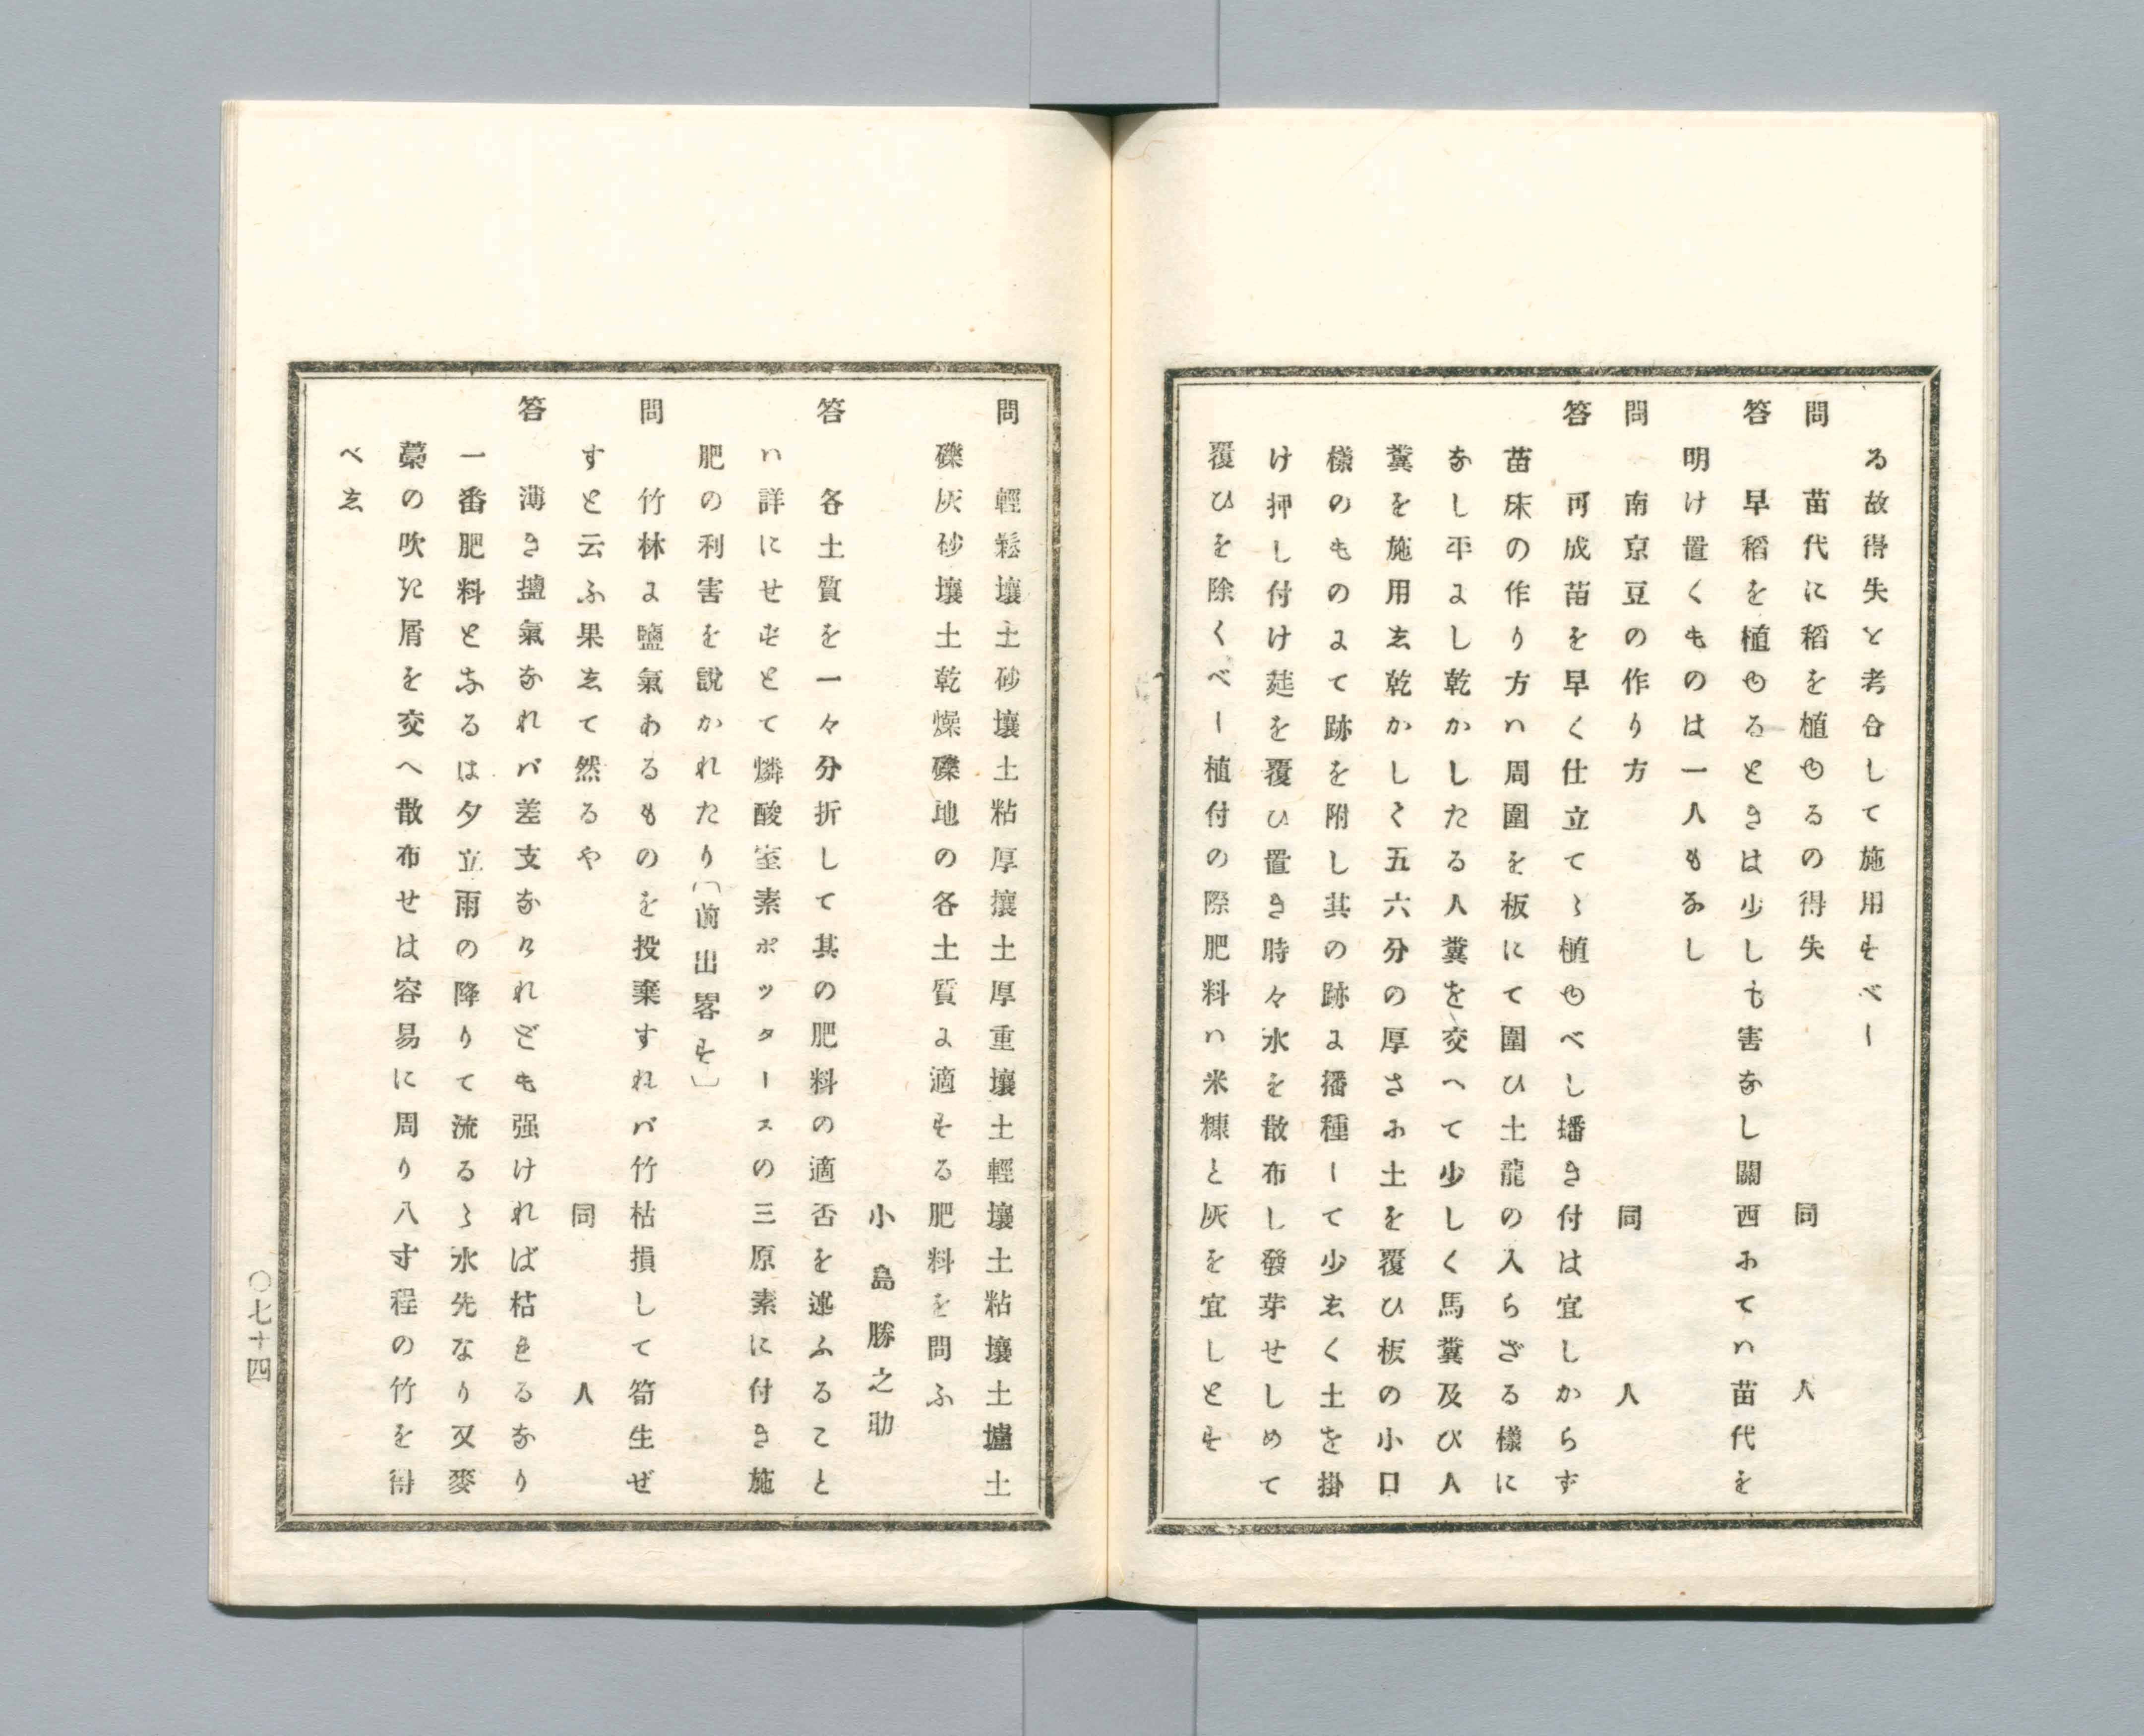 る故得失と考合して施用すべし
問　苗代に稻を植ゆるの得失　　同　　人
答　早稻を植ゆるときは少しも害なし關西みてハ苗代を
明け置くものは一人もなし
問　南京豆の作り方　　同　　人
答　可成苗を早く仕立てゝ植ゆべし播き付は宜しからず
苗床の作り方ハ周圍を板にて圍ひ土龍の入らざる樣に
なし平よし乾かしたる人糞を交へて少しく馬糞及び人
糞を施用し乾かしく五六分の厚さみ土を覆ひ板の小口
樣のものよて跡を附し其の跡よ播種して少しく土を掛
け押し付け莚を覆ひ置き時々水を散布し發芽せしめて
覆ひを除くべし植付の際肥料ハ米糠と灰を宜しとす
問　輕鬆壤土砂壤土粘厚壤土厚重壤土輕壤土粘壤土壚土
礫灰砂壤土乾燥礫地の各土質よ適する肥料を問ふ
小島勝之助
答　各土質を一々分折して其の肥料の適否を述ふること
ハ詳にせずとて燐酸窒素ポッタースの三原素に付き施
肥の利害を說かれたり（前出畧す）
問　竹林よ鹽氣あるものを投棄すれバ竹枯損して筍生ぜ
ずと云ふ果して然るや　　同　　人
答　薄き鹽氣なれバ差支なけれども强ければ枯きるなり
一番肥料となるは夕立雨の降りて流るゝ水先なり又麥
藁の吹た屑を交へ散布せは容易に周り八寸程の竹を得
べし
〇七十四